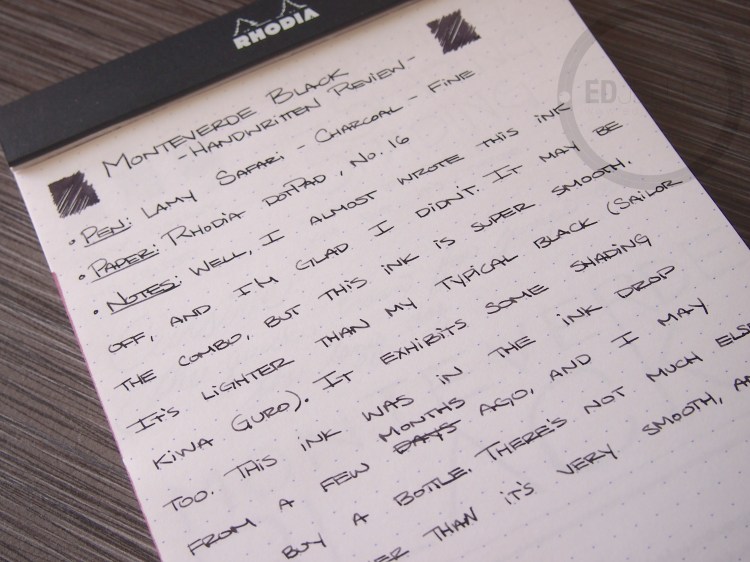 RHODIA
MONTEVERDE BLACK
-HANDWRITTEN REVIEW-
• PEN: LAMY SAFARI - CHARCOAL - FINE
• PAPER: RHODIA DOTPAD, NO. 16
• NOTES: WELL, I ALMOST WROTE THIS INK
OFF, AND I'M GLAD I DIDN'T. IT MAY BE
THE COMBO, BUT THIS INK IS SUPER SMOOTH.
IT'S LIGHTER THAN MY TYPICAL BLACK (SAILOR
KIWA GURO). IT EXHIBITS SOME SHADING
TOO. THIS INK WAS IN THE INK DROP
FROM A FEW DAYS MONTHS AGO, AND I MAY
BUY A BOTTLE. THERE'S NOT MUCH ELSE
THAN IT'S VERY SMOOTH,
ED